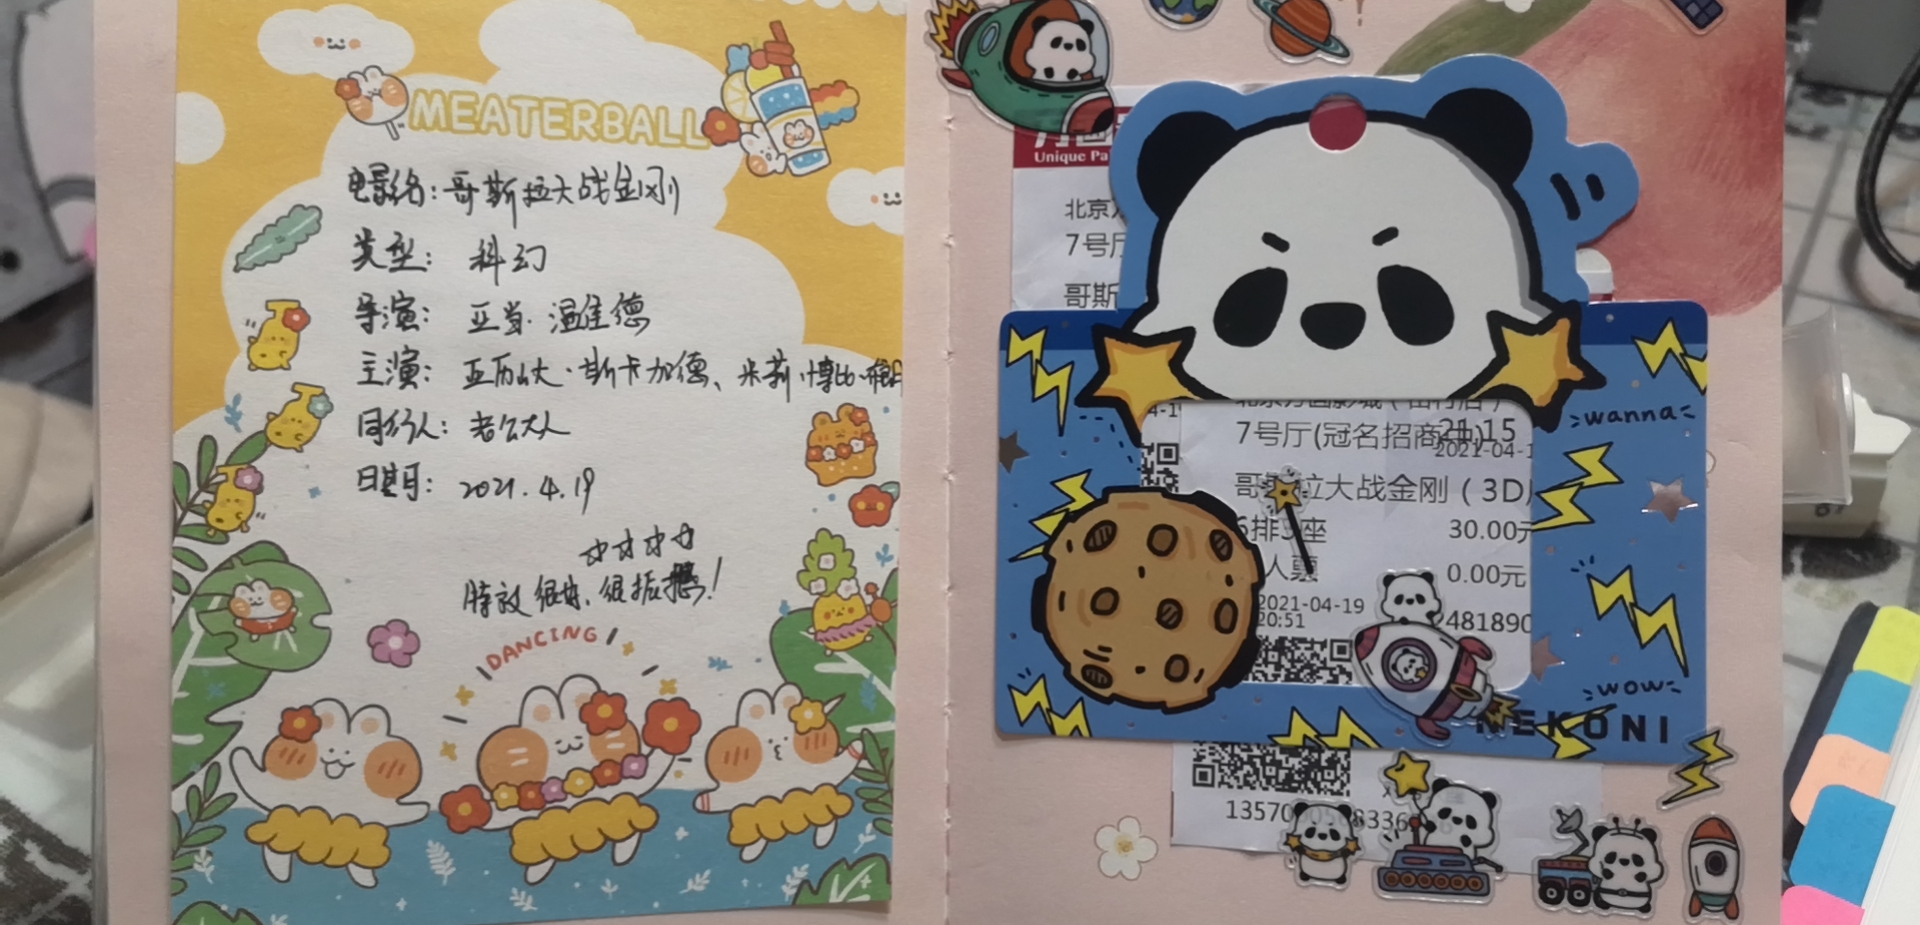 MEATERBALL
电影名：哥斯拉大战金刚
类型：科幻
导演：亚当·温维德
主演：亚历山大·斯卡加德、米莉·博比·
同行人：老公大人
日期：2021.4.19
特效很好、很振撼！
DANCING
Unique Pa
北京
7号厅
哥斯
wanna
7号厅(冠名招商中)
21:15
2021-04-1
哥斯拉大战金刚（3D
排 座
30.00元
人票
0.00元
2021-04-19
20:51
481890
wow
NEKONI